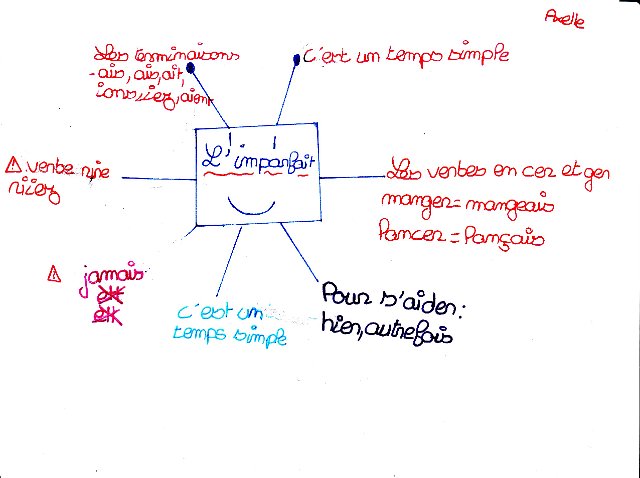 Axelle
Les terminaisons
-ais, ais, ait,
ions, iez, aient
C'est un temps simple
L'imparfait
⚠ verbe rire
riiez
Les verbes en cer et ger
manger = mangeais
lancer = lançais
⚠ jamais
c'est un
temps simple
Pour s'aider :
hier, autrefois